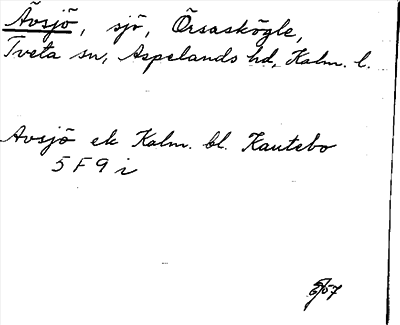 Āvsjö, sjö, Örsaskögle,
Tveta sn, Aspelands hd, Kalm. l.
Avsjö ek Kalm. bl. Kautebo
5 F 9 i